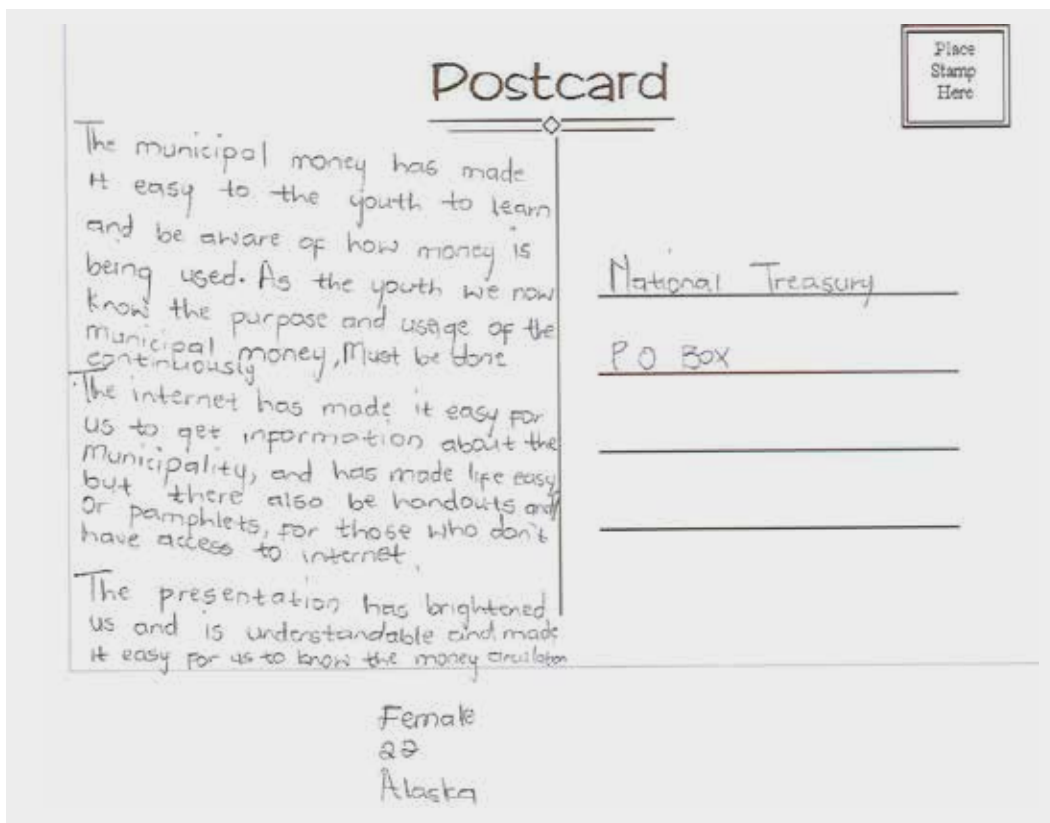 Postcard
Place
Stamp
Here
The municipal money has made
it easy to the youth to learn
and be aware of how money is
being used. As the youth we now
know the purpose and usage of the
municipal money, Must be done
continuously
The internet has made it easy for
us to get information about the
Municipality, and has made life easy
but there also be handouts and/
Or pamphlets, for those who don't
have access to internet.
The presentation has brightened
us and is understandable and made
it easy for us to know the money circulation
National Treasury
P O Box
Female
22
Alaska